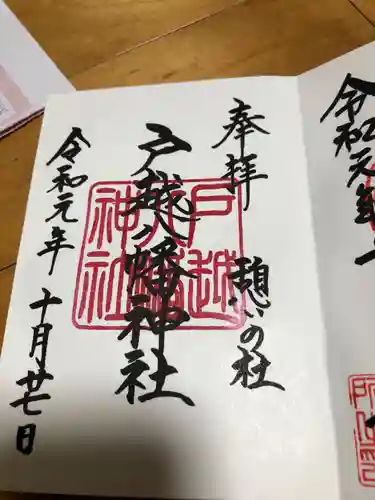 奉拝
憩いの杜
戸越八幡神社
戸越八幡神社
令和元年
十月廿七日
令和元年